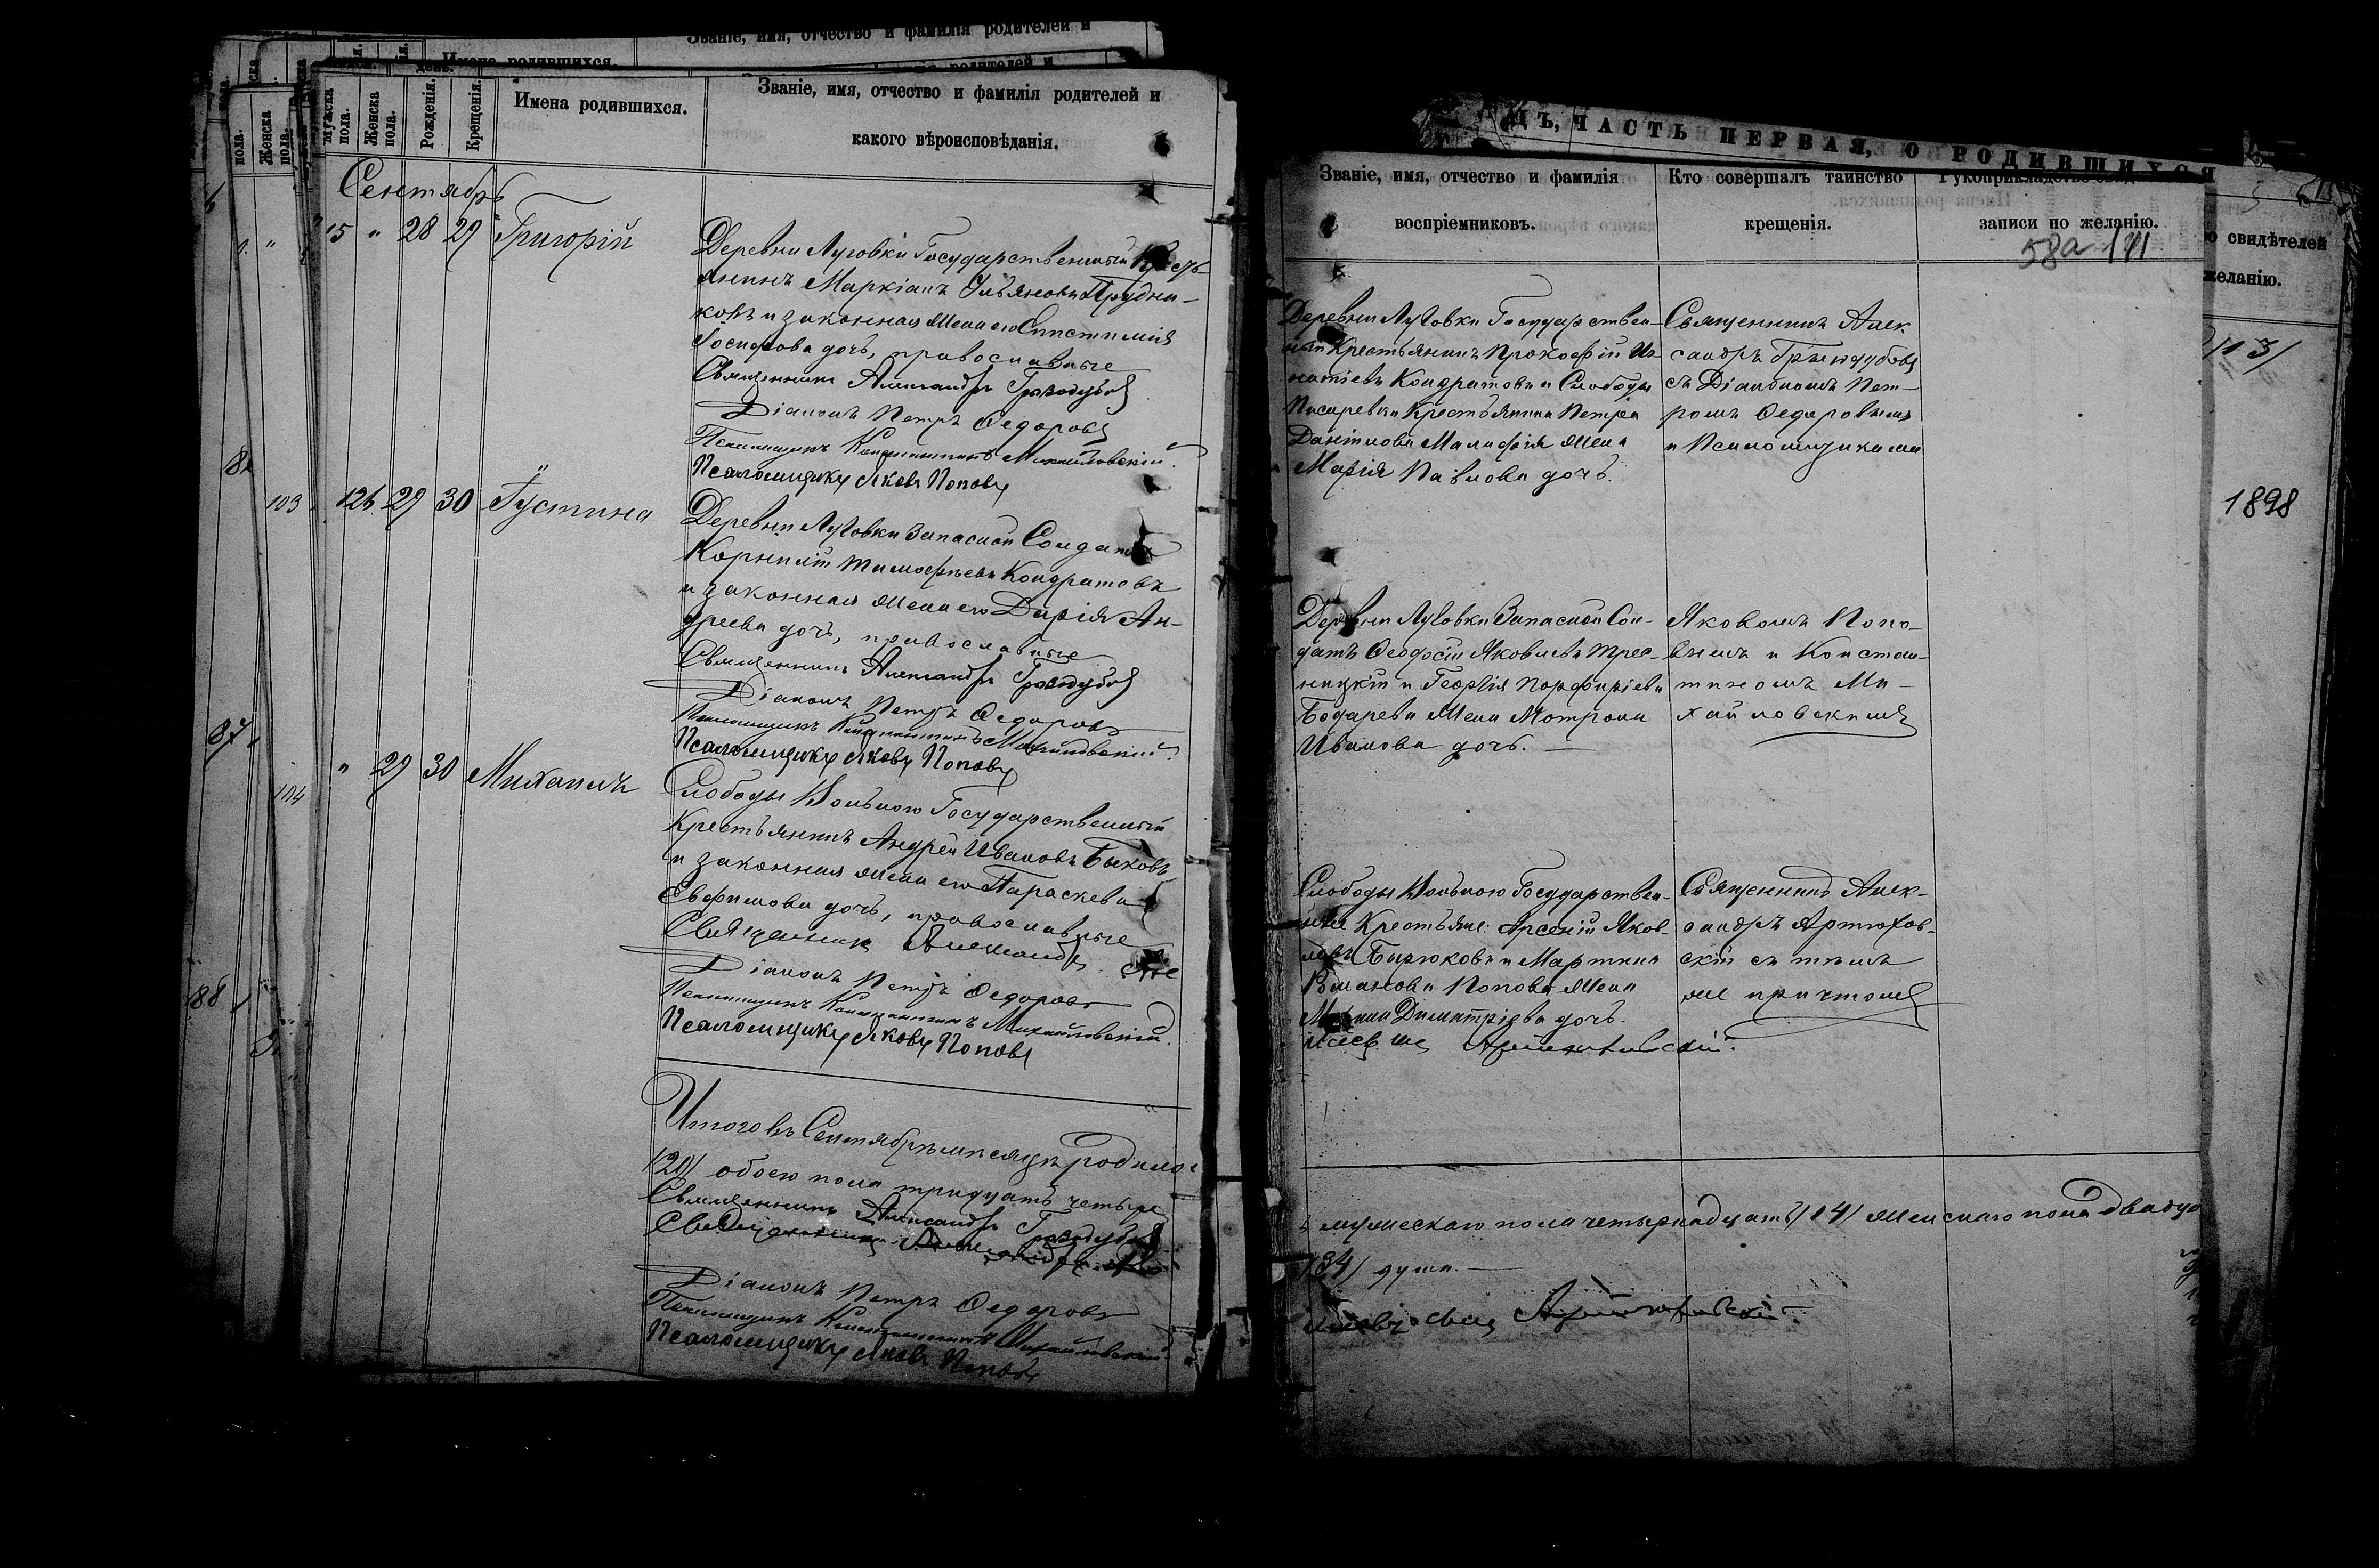 Званіе, имя, отчество и фамилія родителей и
Имена родившихся.
родителей и
Мужска пола.
Женска пола.
Рожденія.
Крещенія.
Имена родившихся.
Званіе, имя, отчество и фамилія родителей и
какого вѣроисповѣданія.
Сентябрь
15 " 28 29 Григорій
Деревни Луговки Государственный Кресть-
янинъ Маркіанъ Ульяновъ Прудни-
ковъ и законная жена его Епистимія
Іосифова дочь, православные
Священникъ Александръ
Діаконъ Петръ Ѳедоровъ
Псаломщикъ Константинъ Михайловскій.
Псаломщикъ Яковъ Поповъ
126 29 30 Іустина
Деревни Луговки Запасной Солдатъ
Корнилій Тимофѣевъ Кондратовъ
и законная жена его Дарія Ан-
дреева дочь, православные
Священникъ Александръ
Діаконъ Петръ Ѳедоровъ
Псаломщикъ Константинъ Михайловскій.
Псаломщикъ Яковъ Поповъ
" 29 30 Михаилъ
Слободы Государственный
Крестьянинъ Андрей Ивановъ Быковъ
и законная жена его Параскева
Евфимова дочь, православные
Священникъ Александръ
Діаконъ Петръ Ѳедоровъ
Псаломщикъ Константинъ Михайловскій.
Псаломщикъ Яковъ Поповъ
Итого въ Сентябрѣ мѣсяцѣ родилось
/20/ обоего пола тридцать четыре
Священникъ Александръ
Священникъ
Діаконъ Петръ Ѳедоровъ
Псаломщикъ Константинъ Михайловскій.
Псаломщикъ Яковъ Поповъ
пола.
Женска пола.
103
87
104
88
ЧАСТЬ ПЕРВАЯ, О РОДИВШИХСЯ
Званіе, имя, отчество и фамилія
воспріемниковъ.
Кто совершалъ таинство
крещенія.
записи по желанію.
58а 171
свидѣтелей
желанію.
1898
Деревни Луговки Государствен-
ный Крестьянинъ Прокофій Иг-
натіевъ Кондратовъ и Слободы
Писаревки Крестьянина Петра
Даніилова жена
Марія Павлова дочь.
Священникъ Алек
сандръ
съ Діакономъ Пет-
ромъ Ѳедоровымъ
и Псаломщиками
Деревни Луговки Запасной Сол-
датъ Ѳеодосій Яковлевъ Трес-
ницкій и Георгія Порфиріева
Бодарева жена Матрона
Иванова дочь.
Яковомъ Попо-
вымъ и Констан-
тиномъ Ми-
хайловскимъ
Слободы Государствен-
ные Крестьяне: Арсеній Яков-
левъ Бирюковъ и Мартина
Романова Попова жена
Димитріева дочь.
Священникъ Алек-
сандръ Артюхов-
скій съ тѣмъ
же причтомъ
мужескаго пола четырнадцать /14/ женскаго пола двадца
/34/ души.